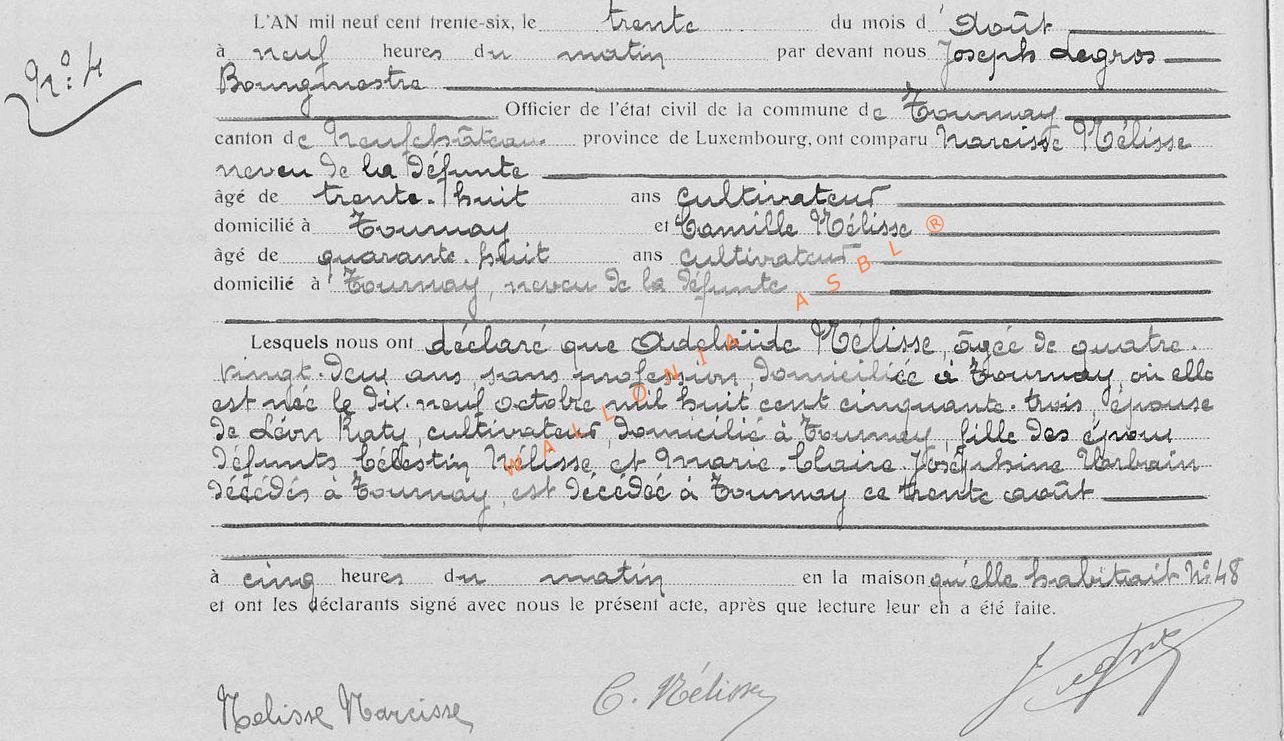 L'AN mil neuf cent trente-six, le trente du mois d'Août
N° 4
à neuf heures du matin par devant nous Joseph Legros
Bourgmestre
Officier de l'état civil de la commune de Tournay
canton de Neufchâteau province de Luxembourg, ont comparu Narcisse Mélisse
neveu de la défunte
âgé de trente-huit ans cultivateur
domicilié à Tournay et Camille Mélisse ®
âgé de quarante-huit ans cultivateur
domicilié à Tournay, neveu de la défunte
WALLONIA ASBL
Lesquels nous ont déclaré que Adelaïde Mélisse, âgée de quatre-
vingt-deux ans, sans profession, domiciliée à Tournay, où elle
est née le dix-neuf octobre mil huit cent cinquante-trois, épouse
de Léon Katy, cultivateur, domicilié à Tournay, fille des époux
défunts Célestin Mélisse et Marie-Claire-Joséphine Urbain
décédés à Tournay, est décédée à Tournay ce trente août
à cinq heures du matin en la maison qu'elle habitait N° 48
et ont les déclarants signé avec nous le présent acte, après que lecture leur en a été faite.
Melisse Narcisse C. Mélisse J Legros